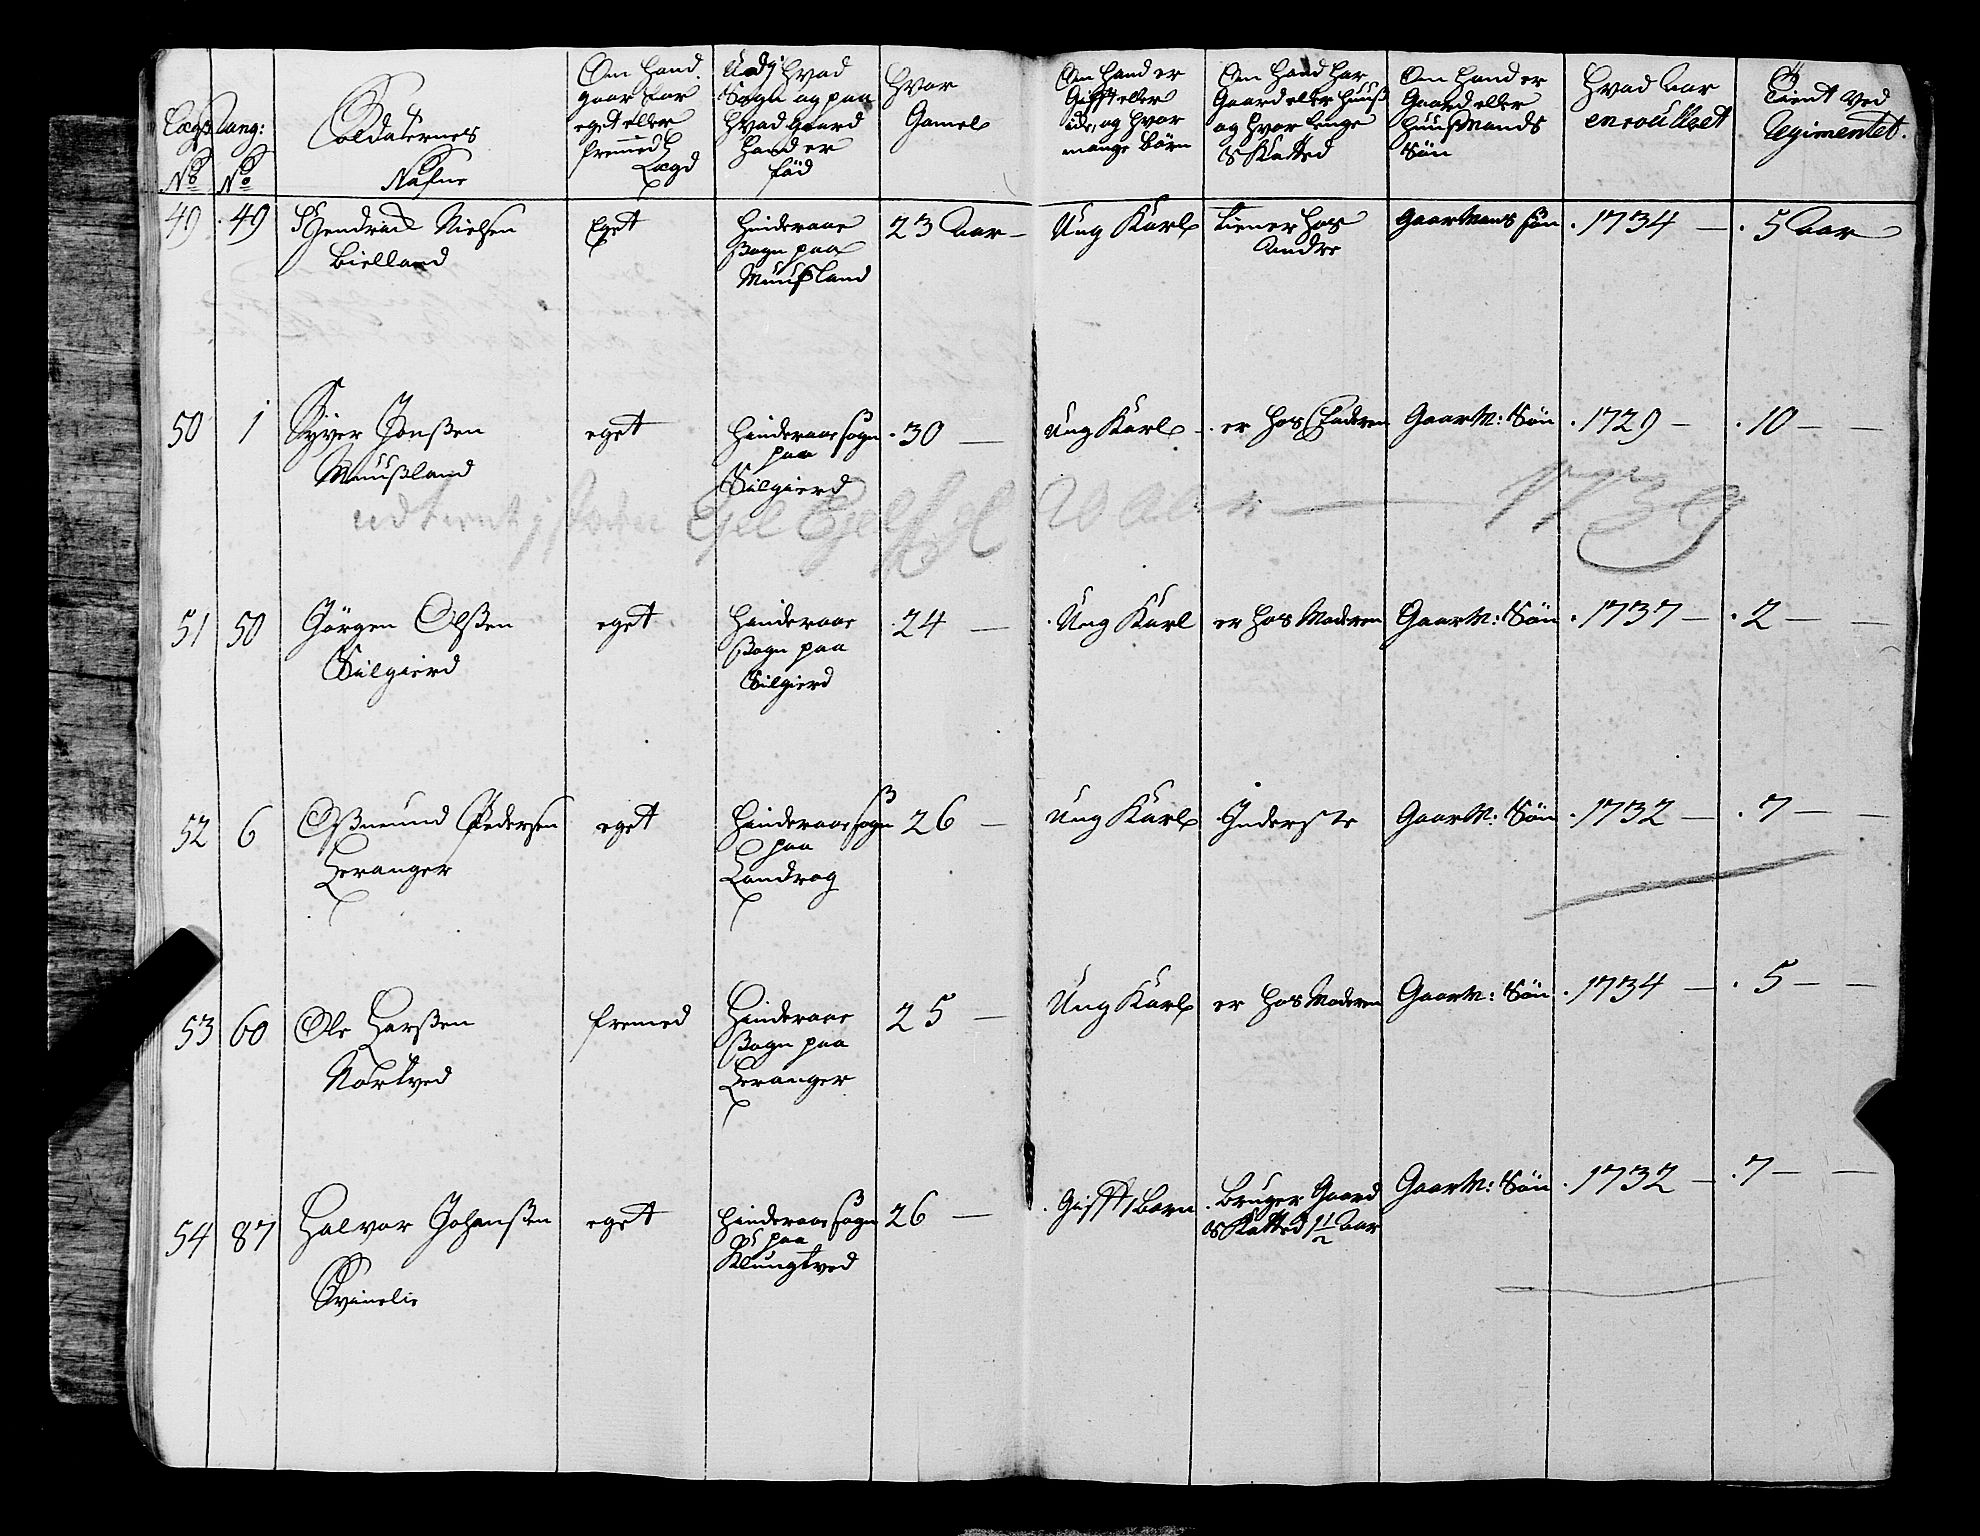 Lægs
No
Rang:
No
Soldaternes
Nafne
Om Hand
gaar for
eget eller
fremmed
Lægd
Udj hvad
Sogn og paa
hvad Gaard
Hand er
föd
Hvor
Gamel
Om Hand er
Gifft eller
ei, og hvor
mange Börn
Om Hand har
Gaard eller Huuß
og hvor lenge
Skatted
Om Hand er
Gaard eller
Huusmands
Sön
Hvad Aar
enroulleret
Tient ved
Regimentet.
49 49 Nielsen
Bielland
Eget
Hinderaae
Sogn paa
Muusland
23 Aar
Ung Karl
tiener hos
andre
Gaarmans Sön
1734
5 Aar
50 1 Syver Jonßen
Muußland
eget
Hinderaae Sogn
paa
Silgierd
30
Ung Karl
er hos Faderen
GaarM: Sön
1729
10
1739
51 50 Jörgen Olßen
Silgierd
eget
Hinderaae
Sogn paa
Silgierd
24
Ung Karl
er hos Moderen
GaarM: Sön
1737
2
52 6 Oßmund Pedersen
Leranger
eget
Hinderaae Sogn
paa
Landrog
26
Ung Karl
Inderste
GaarM: Sön
1732
7
53 60 Ole Larßen
Nortved
fremed
Hinderaae
Sogn paa
Leranger
25
Ung Karl
er hos Moderen
GaarM: Sön
1734
5
54 87 Halvor Johanßen
Svinelie
eget
Hinderaae Sogn
paa
Klungtved
26
Gifft 1 Barn
Bruger Gaard
Skatted 1 1/2 Aar
GaarM: Sön
1732
7